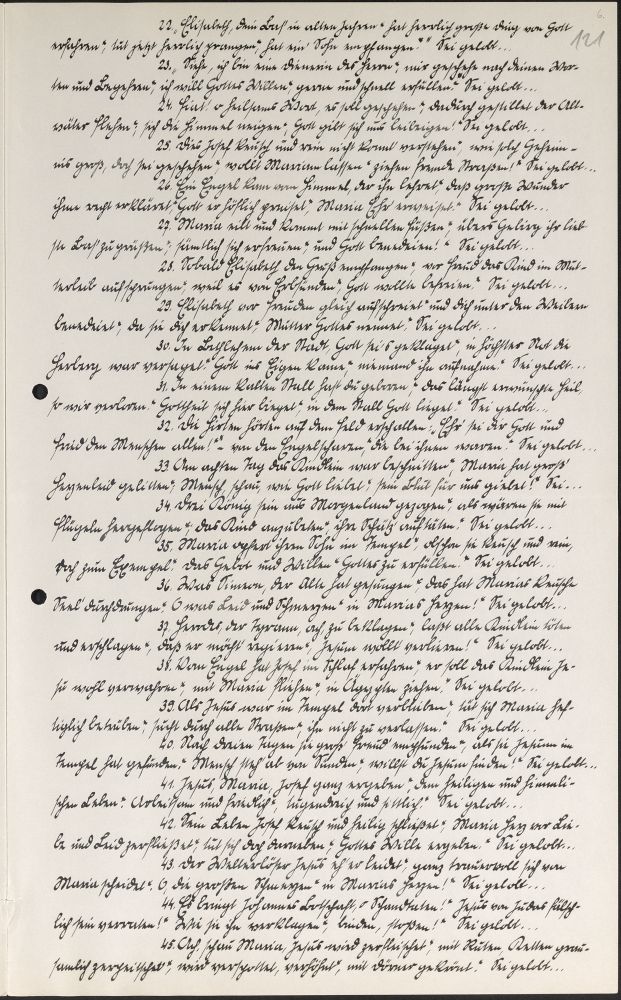 6.
121
22. „Elisabeth, dein Bas' in alten Jahren" hat herrlich große ding von Gott
erfahren", tut jetzt herrlich prangen" hat ein' Sohn empfangen!" Sei gelobt...
23. „Siehe, ich bin eine Dienerin des Herrn", mir geschehe nach deinen Wor-
ten und Begehren", ich will Gottes Willen" gerne und schnell erfüllen!" Sei gelobt...
24. Hint! o heilsams Wort, es soll geschehen", dadurch gestillet der Alt-
väter Flehen", sich die Himmel neigen" Gott gibt sich uns leibeigen!" Sei gelobt...
25. Dies Josef keusch und rein nicht konnt verstehen", wie solch Geheim-
nis groß, doch sei geschehen", wollt Mariam lassen" ziehen fremde Straßen!" Sei gelobt...
26. Ein Engel kam vom Himmel, der ihn lehret" daß große Wunder
ihme recht erkläret", Gott er höflich preiset", Maria Ehr erweiset." Sei gelobt...
27. Maria eilt und kommt mit schnellen Füßen", übers Gebirg ihr lieb-
ste Bas' zu grüßen", sämtlich sich erfreuen" und Gott benedeien!" Sei gelobt...
28. Sobald Elisabeth den Gruß empfangen", vor Freud das Kind im Mut-
terleib aufsprungen", weil es von Erbsünden", Gott wollte befreien." Sei gelobt...
29. Elisabeth vor Freuden gleich aufschreiet" und dich unter den Weibern
benedeiet", da sie dich erkennet" Mutter Gottes nennet." Sei gelobt...
30. In Bethlehem der Stadt, Gott sei's geklaget", in höchster Not die
Herberg war versaget" Gott ins Eigen kame", niemand ihn aufnahme." Sei gelobt...
31. In einem kalten Stall hast du geboren", das längst erwünschte Heil,
so wir verloren." Gottheit sich hier bieget", in dem Stall Gott lieget." Sei gelobt...
32. Die Hirten hörten auf dem Feld erschallen: „Ehr sei dir Gott und
Fried den Menschen allen!" – von den Engelscharen", die bei ihnen waren." Sei gelobt...
33. Am achten Tag das Kindlein war beschnitten", Maria hat groß'
Herzenleid gelitten", Mensch, schau, wie Gott liebet", sein Blut für uns gibet!" Sei...
34. Drei König sein aus Morgenland gezogen", als wären sie mit
Flügeln hergeflogen", das Kind anzubeten", ihre Schätz auftäten." Sei gelobt...
35. Maria opfert ihren Sohn im Tempel", obschon sie keusch und rein,
doch zum Exempel" das Gebot und Willen" Gottes zu erfüllen." Sei gelobt...
36. Was Simeon, der Alte hat gesungen", das hat Marias keusche
Seel' durchdrungen" O was Leid und Schmerzen" in Marias Herzen!" Sei gelobt...
37. Herodes, der Tyrann, ach, zu beklagen", laßt alle Kindlein töten
und erschlagen", daß er möcht regieren", Jesum wollt verlieren!" Sei gelobt...
38. Vom Engel hat Josef im Schlaf erfahren", er soll das Kindlein Je-
su wohl verwahren", mit Maria fliehen", in Ägypten ziehen." Sei gelobt...
39. Als Jesus war im Tempel dort verblieben", tut sich Maria hef-
tiglich betrüben", sucht durch alle Straßen", ihn nicht zu verlassen." Sei gelobt...
40. Nach dreien Tagen sie große Freud empfunden", als sie Jesum im
Tempel hat gefunden." Mensch steh' ab von Sünden", willst du Jesum finden!" Sei gelobt...
41. Jesus, Maria, Josef ganz ergeben", dem heiligen und himmli-
schen Leben." Arbeitsam und friedlich", tugendreich und sittlich." Sei gelobt...
42. Sein Leben Josef keusch und heilig schließet", Maria Herz vor Lie-
be und Leid zerfließet", tut sich doch darneben", Gottes Wille ergeben." Sei gelobt...
43. Der Welterlöser Jesus eh' er leidet", ganz trauervoll sich von
Maria scheidet". O, die größten Schmerzen" in Marias Herzen!" Sei gelobt...
44. Es bringt Johannes Botschaft, o Schandtaten!" Jesus von Judas fälsch-
lich sein verraten!" Wie sie ihn verklagen", binden, stoßen!" Sei gelobt...
45. Ach schau Maria, Jesus wird zerfleischet", mit Ruten Ketten grau-
samlich zerpeitschet", wird verspottet, verhöhnt", mit Dörner gekrönt." Sei gelobt...